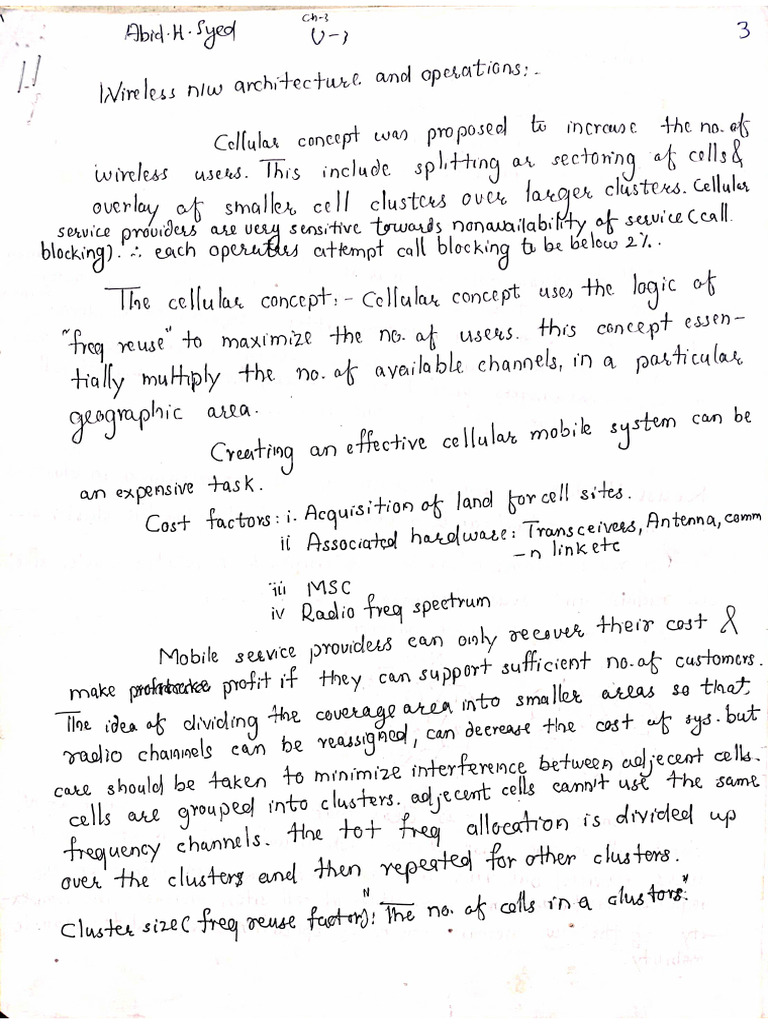 Abid.H.Syed
Ch-3
U-3
3
1.1
Wireless n/w architecture and operations:-
Cellular concept was proposed to increase the no. of
wireless users. This include splitting or sectoring of cells &
overlay of smaller cell clusters over larger clusters. Cellular
service providers are very sensitive towards nonavailability of service (call
blocking). ∴ each operators attempt call blocking to be below 2%.
The cellular concept:- Cellular concept uses the logic of
"freq reuse" to maximize the no. of users. this concept essen-
tially multiply the no. of available channels, in a particular
geographic area.
Creating an effective cellular mobile system can be
an expensive task.
Cost factors: i. Acquisition of land for cell sites.
ii Associated hardware: Transceivers, Antenna, comm
-n link etc
iii MSC
iv Radio freq spectrum
Mobile service providers can only recover their cost &
make profit if they can support sufficient no. of customers.
The idea of dividing the coverage area into smaller areas so that
radio channels can be reassigned, can decrease the cost of sys. but
care should be taken to minimize interference between adjecent cells.
cells are grouped into clusters. adjecent cells cann't use the same
frequency channels. the tot freq allocation is divided up
over the clusters and then repeated for other clusters.
Cluster size (freq reuse factor): "N The no. of cells in a clustors"